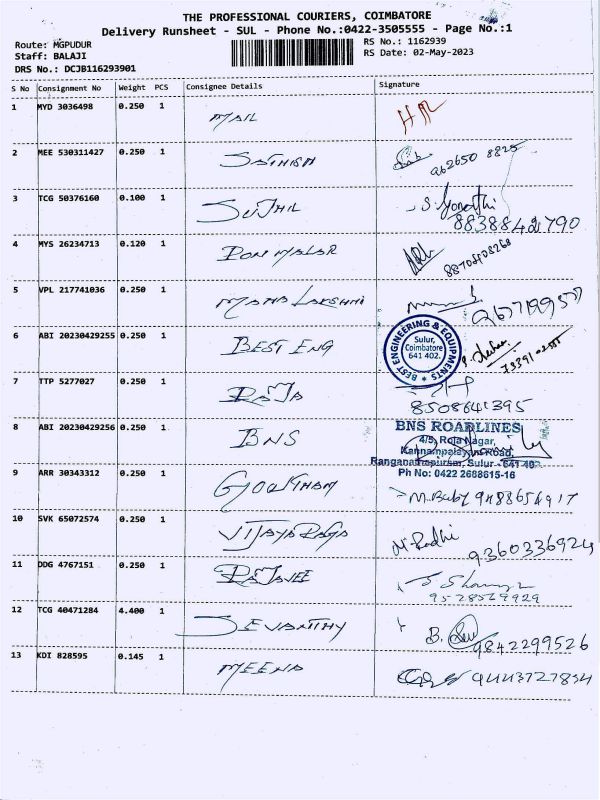 THE PROFESSIONAL COURIERS, COIMBATORE
Delivery Runsheet - SUL - Phone No.:0422-3505555 - Page No.:1
Route: MGPUDUR
RS No.: 1162939
Staff: BALAJI
RS Date: 02-May-2023
DRS No.: DCJB116293901
S No Consignment No Weight PCS Consignee Details Signature
1 MYD 3036498 0.250 1 MAIL
2 MEE 530311427 0.250 1 SATHISH
3 TCG 50376160 0.100 1 SUJHIL
8838842790
4 MYS 26234713 0.120 1 PONMALAR
5 VPL 217741036 0.250 1 MAHA LAKSHMI
6 ABI 20230429255 0.250 1 BEST ENG
BEST ENGINEERING & EQUIPMENTS
Sulur,
Coimbatore
641 402.
7 TTP 5277027 0.250 1 RAJA
8508641395
8 ABI 20230429256 0.250 1 BNS
BNS ROADLINES
4/5, Roja Nagar,
Kannampalayam Road,
Ranganathapuram, Sulur - 641 402
Ph No: 0422 2688615-16
9 ARR 30343312 0.250 1 GOWTHAM
M. Baby
10 SVK 65072574 0.250 1 VIJAYA RAGA
9360336924
11 DDG 4767151 0.250 1 RAJAVEE
9528569929
12 TCG 40471284 4.400 1 JEVANTHY
B.
9842299526
13 KDI 828595 0.145 1 MEENA
9443727834